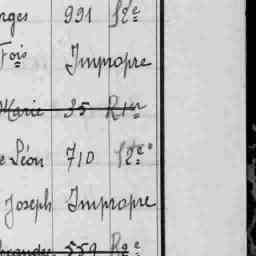 rges 991 S2e
Fois Impropre
Marie 35 R1er
e Léon 710 S2e
Joseph Impropre
559 R2e